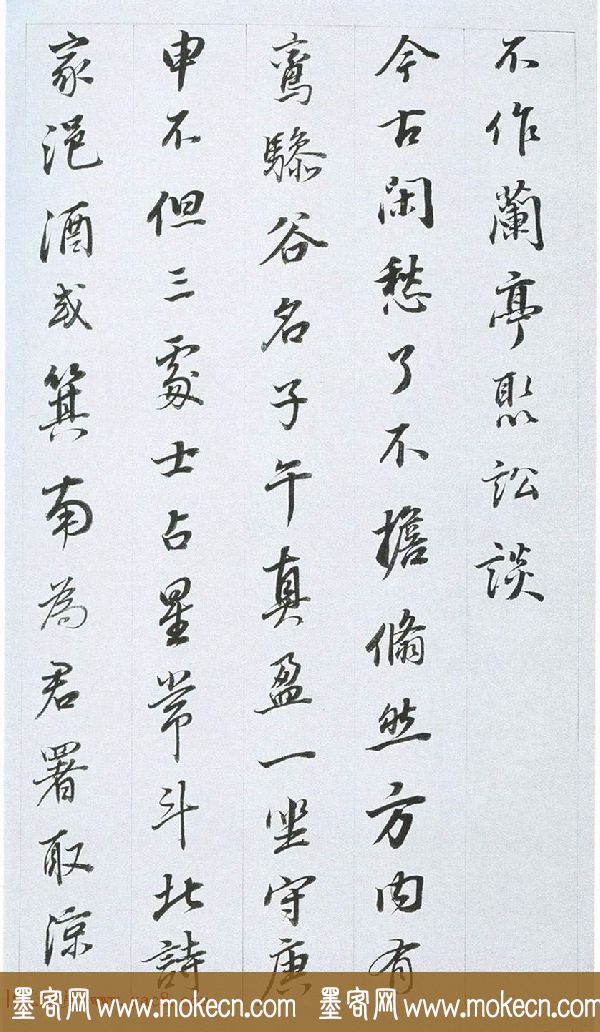 不作蘭亭聚訟談
今古閑愁了不擔翛然方內有
鸞驂谷名子午真盈一坐守庚
申不但三處士占星常斗北詩
家浥酒或箕南為君署取涼
墨客网 www.mokecn.com 墨客网 www.mokecn.com